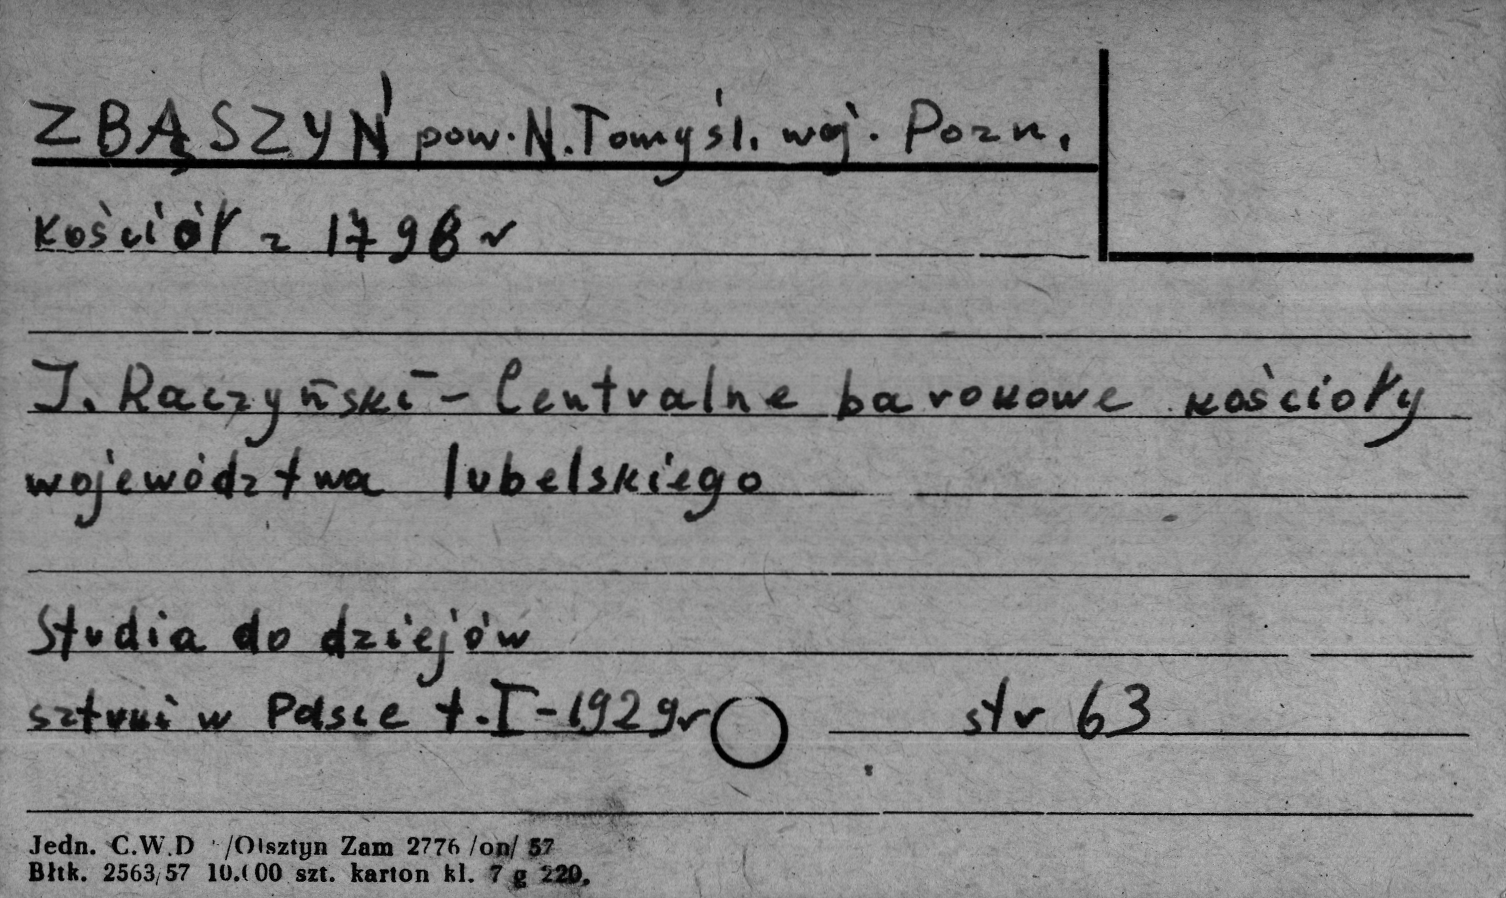 ZBĄSZYŃ pow. N. Tomyśl. woj. Pozn.
kościół z 1796 r
J. Raczyński - Centralne barokowe kościoły
województwa lubelskiego
Studia do dziejów
sztuki w Polsce t. I - 1929r str 63
Jedn. C.W.D /Olsztyn Zam 2776 /on/ 57
Błtk. 2563/57 10.000 szt. karton kl. 7 g 220.